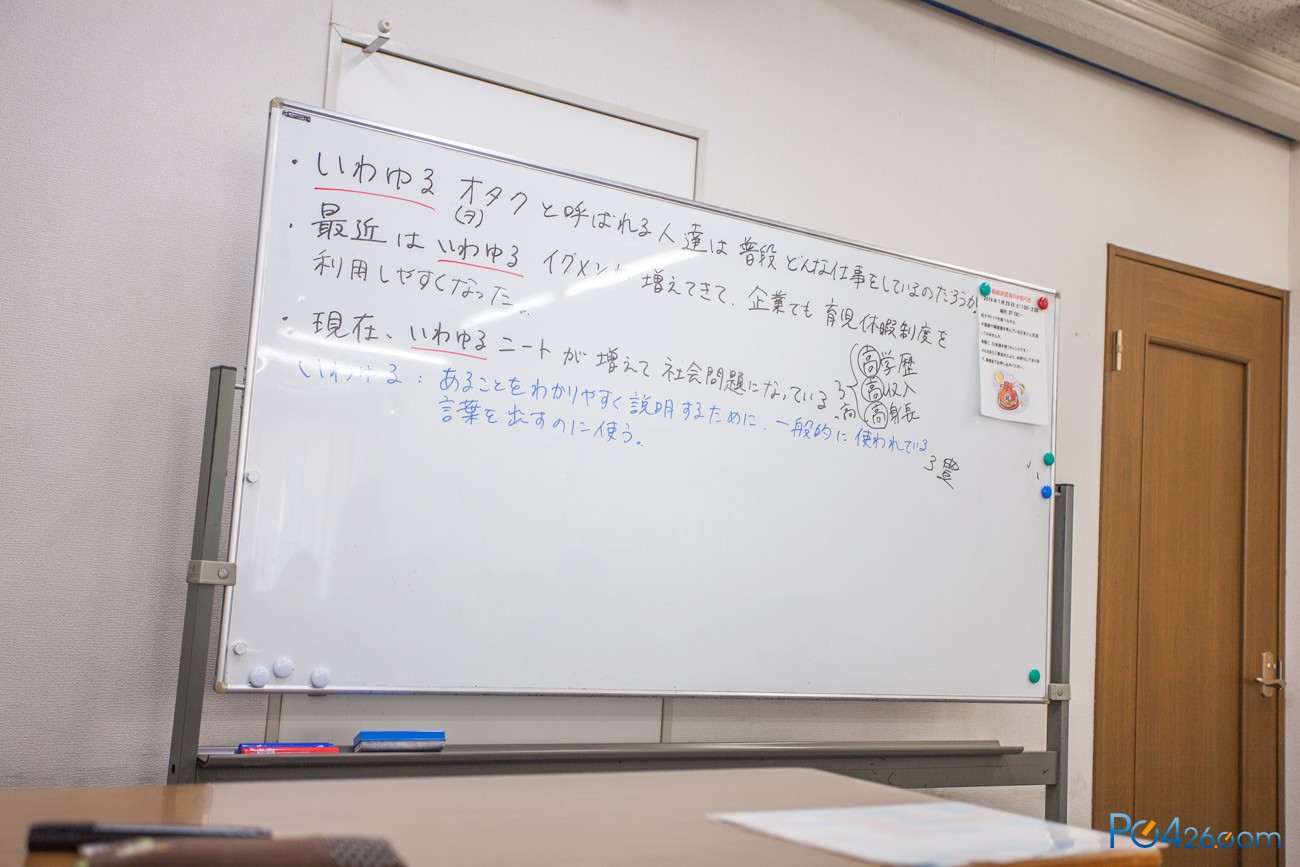 ・いわゆる オタクと呼ばれる人達は普段どんな仕事をしているのだろうか
(ヲ)
・最近は いわゆる イクメンが 増えてきて、企業でも 育児休暇制度を
利用しやすくなった
・現在、いわゆる ニートが 増えて 社会問題になっている
高学歴
高収入
高身長
いわゆる:あることをわかりやすく説明するために、一般的に使われている
言葉を出すのに使う。
PC426com